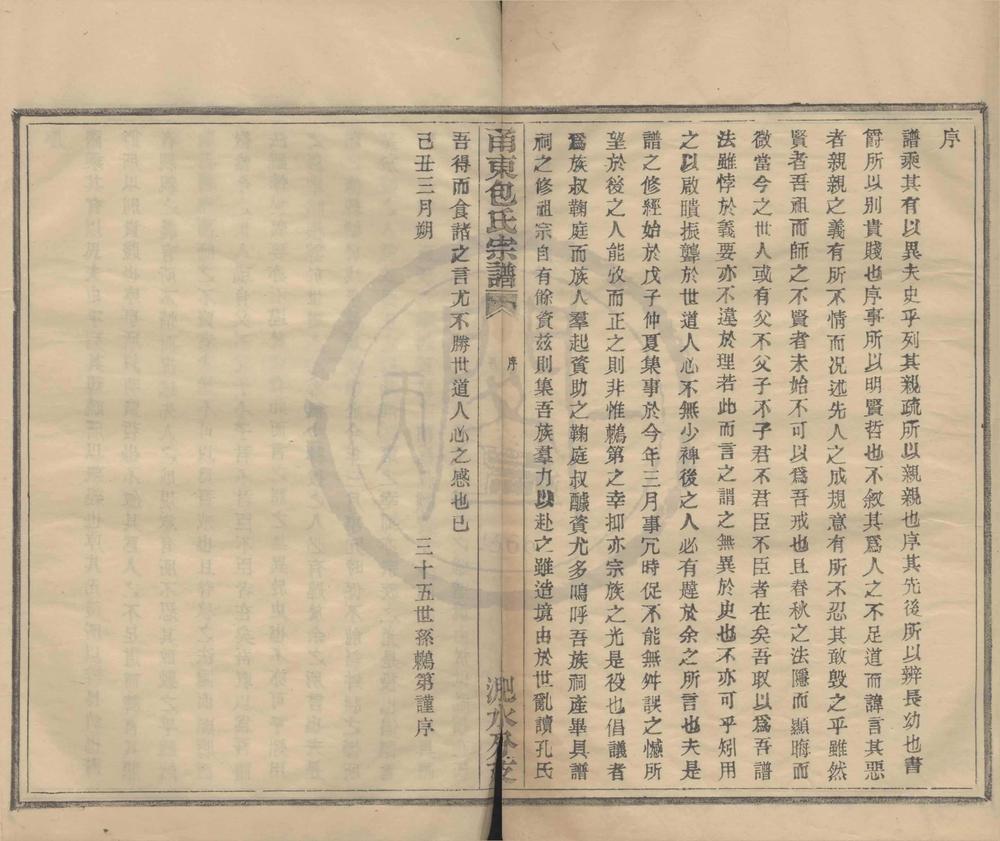 序
譜乘其有以異夫史乎列其親疏所以親親也序其先後所以辨長幼也書
爵所以别貴賤也序事所以明賢哲也不敘其爲人之不足道而諱言其惡
者親親之義有所不情而况述先人之成規意有所不忍其敢毁之乎雖然
賢者吾祖而師之不賢者未始不可以爲吾戒也且春秋之法隱而顯晦而
微當今之世人或有父不父子不子君不君臣不臣者在矣吾取以爲吾譜
法雖悖於義要亦不違於理若此而言之謂之無異於史也不亦可乎矧用
之以啟聵振聾於世道人心不無少裨後之人必有韙於余之所言也夫是
譜之修經始於戊子仲夏集事於今年三月事冗時促不能無舛誤之憾所
望於後之人能攷而正之則非惟鶼第之幸抑亦宗族之光是役也倡議者
爲族叔鞠庭而族人羣起資助之鞠庭叔醵資尤多嗚呼吾族祠產畢具譜
祠之修祖宗自有餘資茲則集吾族羣力以赴之雖造境由於世亂讀孔氏
甬東包氏宗譜
序
吾得而食諸之言尤不勝世道人心之感也已
己丑三月朔
三十五世孫鶼第謹序